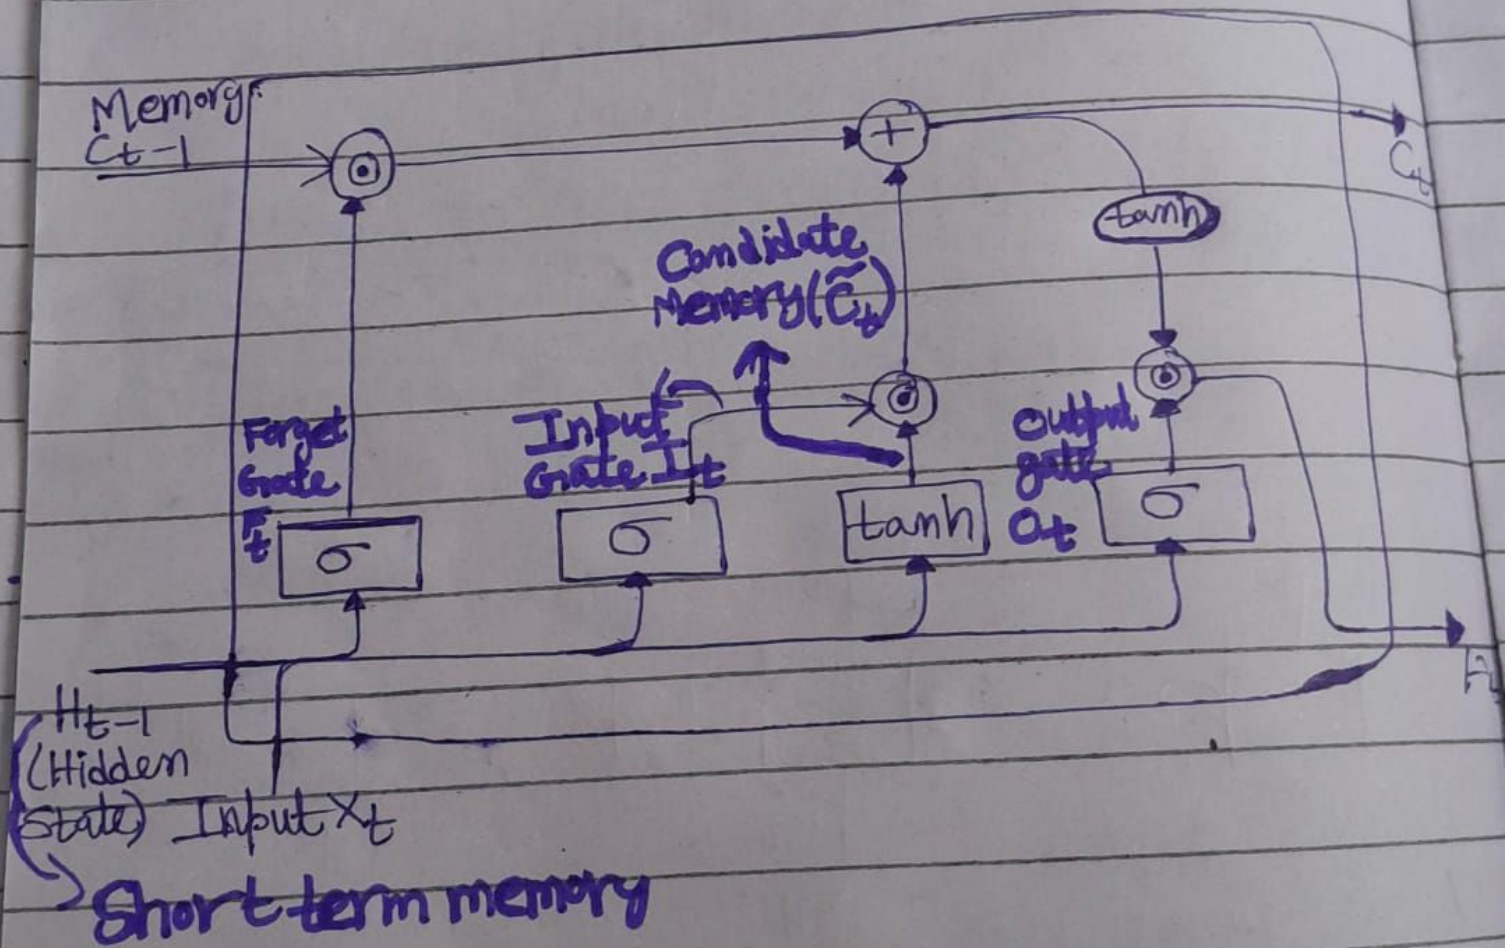 Memory
Ct-1
+
Ct
tanh
Candidate
Memory(C̃t)
Forget
Gate
Ft
Input
Gate It
Output
gate
Ot
σ
σ
tanh
σ
Ht-1
(Hidden
State)
Input Xt
Short term memory